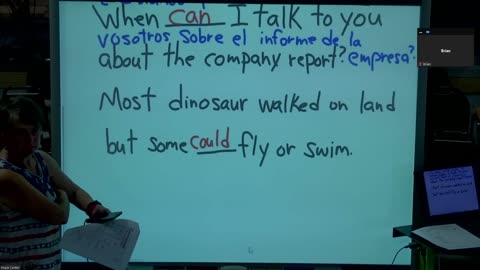 When can I talk to you
vosotros sobre el informe de la
about the company report? empresa?
Most dinosaur walked on land
but some could fly or swim.
Brian
Brian